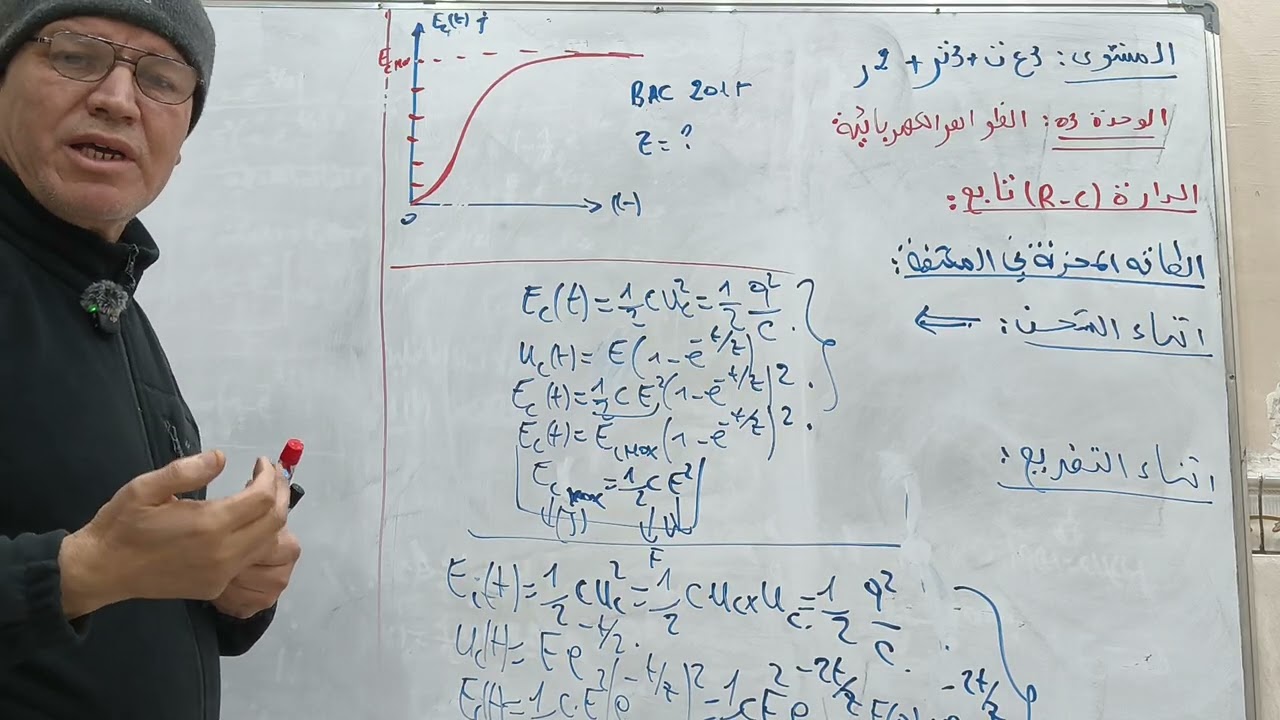 المستوى: 3ع ت + 3تر + 2ر
الوحدة 03: الظواهر الكهربائية
الدارة (R-C) تابع:
الطاقة المخزنة في المكثفة:
اثناء الشحن:
اثناء التفريغ:
Ec(t) j
Ecmax
0
t(-)
BAC 201
τ = ?
Ec(t) = 1/2 C Uc² = 1/2 q²/C .
Uc(t) = E(1-e^-t/τ)
Ec(t) = 1/2 C E²(1-e^-t/τ)² .
Ec(t) = EcMax(1-e^-t/τ)² .
Ec max = 1/2 C E²
(J) F V
Ec(t) = 1/2 C Uc² = 1/2 C Uc x Uc = 1/2 q²/C .
Uc(t) = E e^-t/τ .
Ec(t) = 1/2 C E²(e^-t/τ)² = 1/2 C E² e^-2t/τ